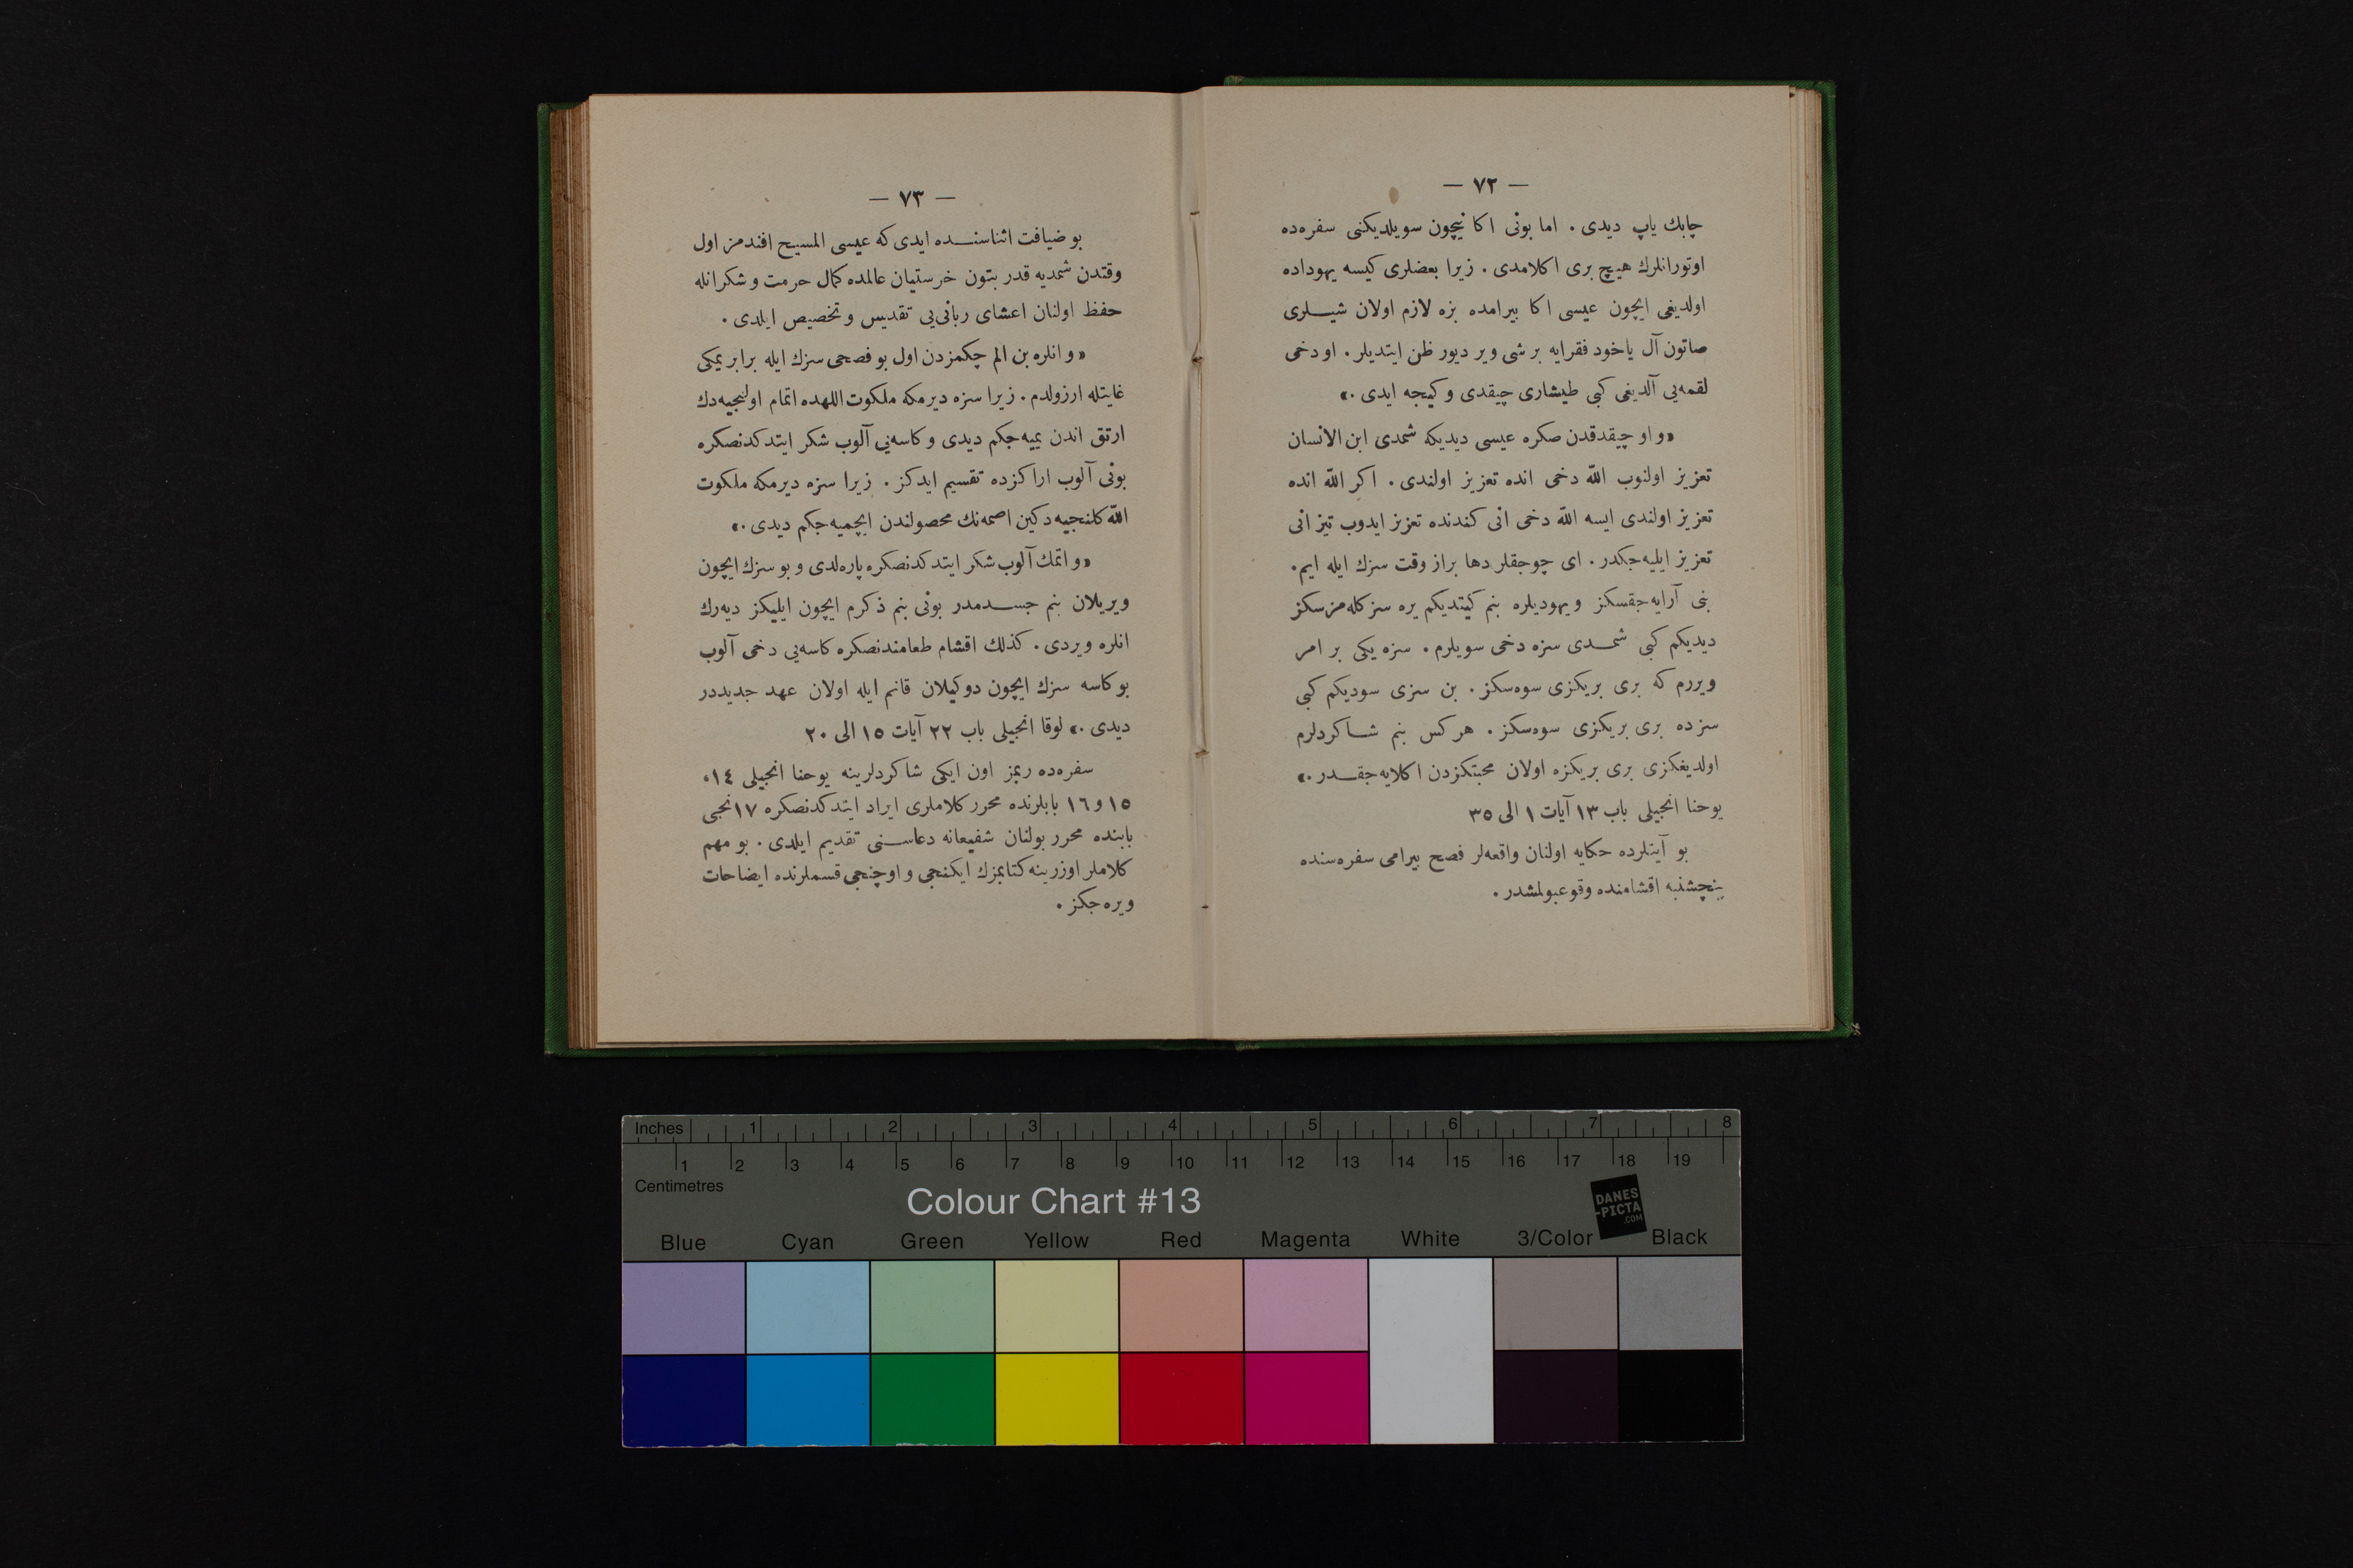 — ٧٢ —
چابك ياپ ديدى . اما بونى اكا نيچون سويلديكنى سفره‌ده
اوتورانلرك هيچ برى اكلامدى . زيرا بعضلرى كيسه يهوداده
اولديغى ايچون عيسى اكا بيرامده بزه لازم اولان شيلرى
صاتون آل ياخود فقرايه بر شى وير ديور ظن ايتديلر . او دخى
لقمه‌يى آلديغى كبى طيشارى چيقدى و كيجه ايدى .»
«و او چيقدقدن صكره عيسى ديديكه شمدى ابن الانسان
تعزيز اولنوب اللّه دخى انده تعزيز اولندى . اكر اللّه انده
تعزيز اولندى ايسه اللّه دخى انى كندنده تعزيز ايدوب تيز انى
تعزيز ايليه‌جكدر . اى چوجقلر دها براز وقت سزك ايله ايم .
بنى آرايه‌جقسكز ويهوديلره بنم كيتديكم يره سز كله‌مزسكز
ديديكم كبى شمدى سزه دخى سويلرم . سزه يكى بر امر
ويررم كه برى بريكزى سوه‌سكز . بن سزى سوديكم كبى
سزده برى بريكزى سوه‌سكز . هركس بنم شاكردلرم
اولديغكزى برى بريكزه اولان محبتكزدن اكلايه‌جقدر .»
يوحنا انجيلى باب ١٣ آيات ١ الى ٣٥
بو آيتلرده حكايه اولنان واقعه‌لر فصح بيرامى سفره‌سنده
پنچشنبه اقشامنده وقوعبولمشدر .
— ٧٣ —
بو ضيافت اثناسنده ايدى كه عيسى المسيح افندمز اول
وقتدن شمديه قدر بتون خرستيان عالمده كمال حرمت و شكرانله
حفظ اولنان اعشاى ربانى‌يى تقديس و تخصيص ايلدى .
«و انلره بن الم چكمزدن اول بو فصحى سزك ايله برابر يمكى
غايتله ارزولدم . زيرا سزه ديرمكه ملكوت اللهده اتمام اولنجيه‌دك
ارتق اندن يميه‌جكم ديدى و كاسه‌يى آلوب شكر ايتدكدنصكره
بونى آلوب اراكزده تقسيم ايدكز . زيرا سزه ديرمكه ملكوت
اللّه كلنجيه دكين اصمه‌نك محصولندن ايچميه‌جكم ديدى .»
«و اتمك آلوب شكر ايتدكدنصكره پاره‌لدى و بو سزك ايچون
ويريلان بنم جسدمدر بونى بنم ذكرم ايچون ايليكز ديه‌رك
انلره ويردى . كذلك اقشام طعامندنصكره كاسه‌يى دخى آلوب
بو كاسه سزك ايچون دوكيلان قانم ايله اولان عهد جديددر
ديدى .» لوقا انجيلى باب ٢٢ آيات ١٥ الى ٢٠
سفره‌ده ربمز اون ايكى شاكردلرينه يوحنا انجيلى ١٤،
١٥ و ١٦ بابلرنده محرر كلاملرى ايراد ايتدكدنصكره ١٧نجى
بابنده محرر بولنان شفيعانه دعاسنى تقديم ايلدى . بو مهم
كلاملر اوزرينه كتابمزك ايكنجى و اوچنجى قسملرنده ايضاحات
ويره‌جكز .
Inches 1 2 3 4 5 6 7 8
1 2 3 4 5 6 7 8 9 10 11 12 13 14 15 16 17 18 19
Centimetres
Colour Chart #13
DANES
-PICTA
.COM
Blue Cyan Green Yellow Red Magenta White 3/Color Black